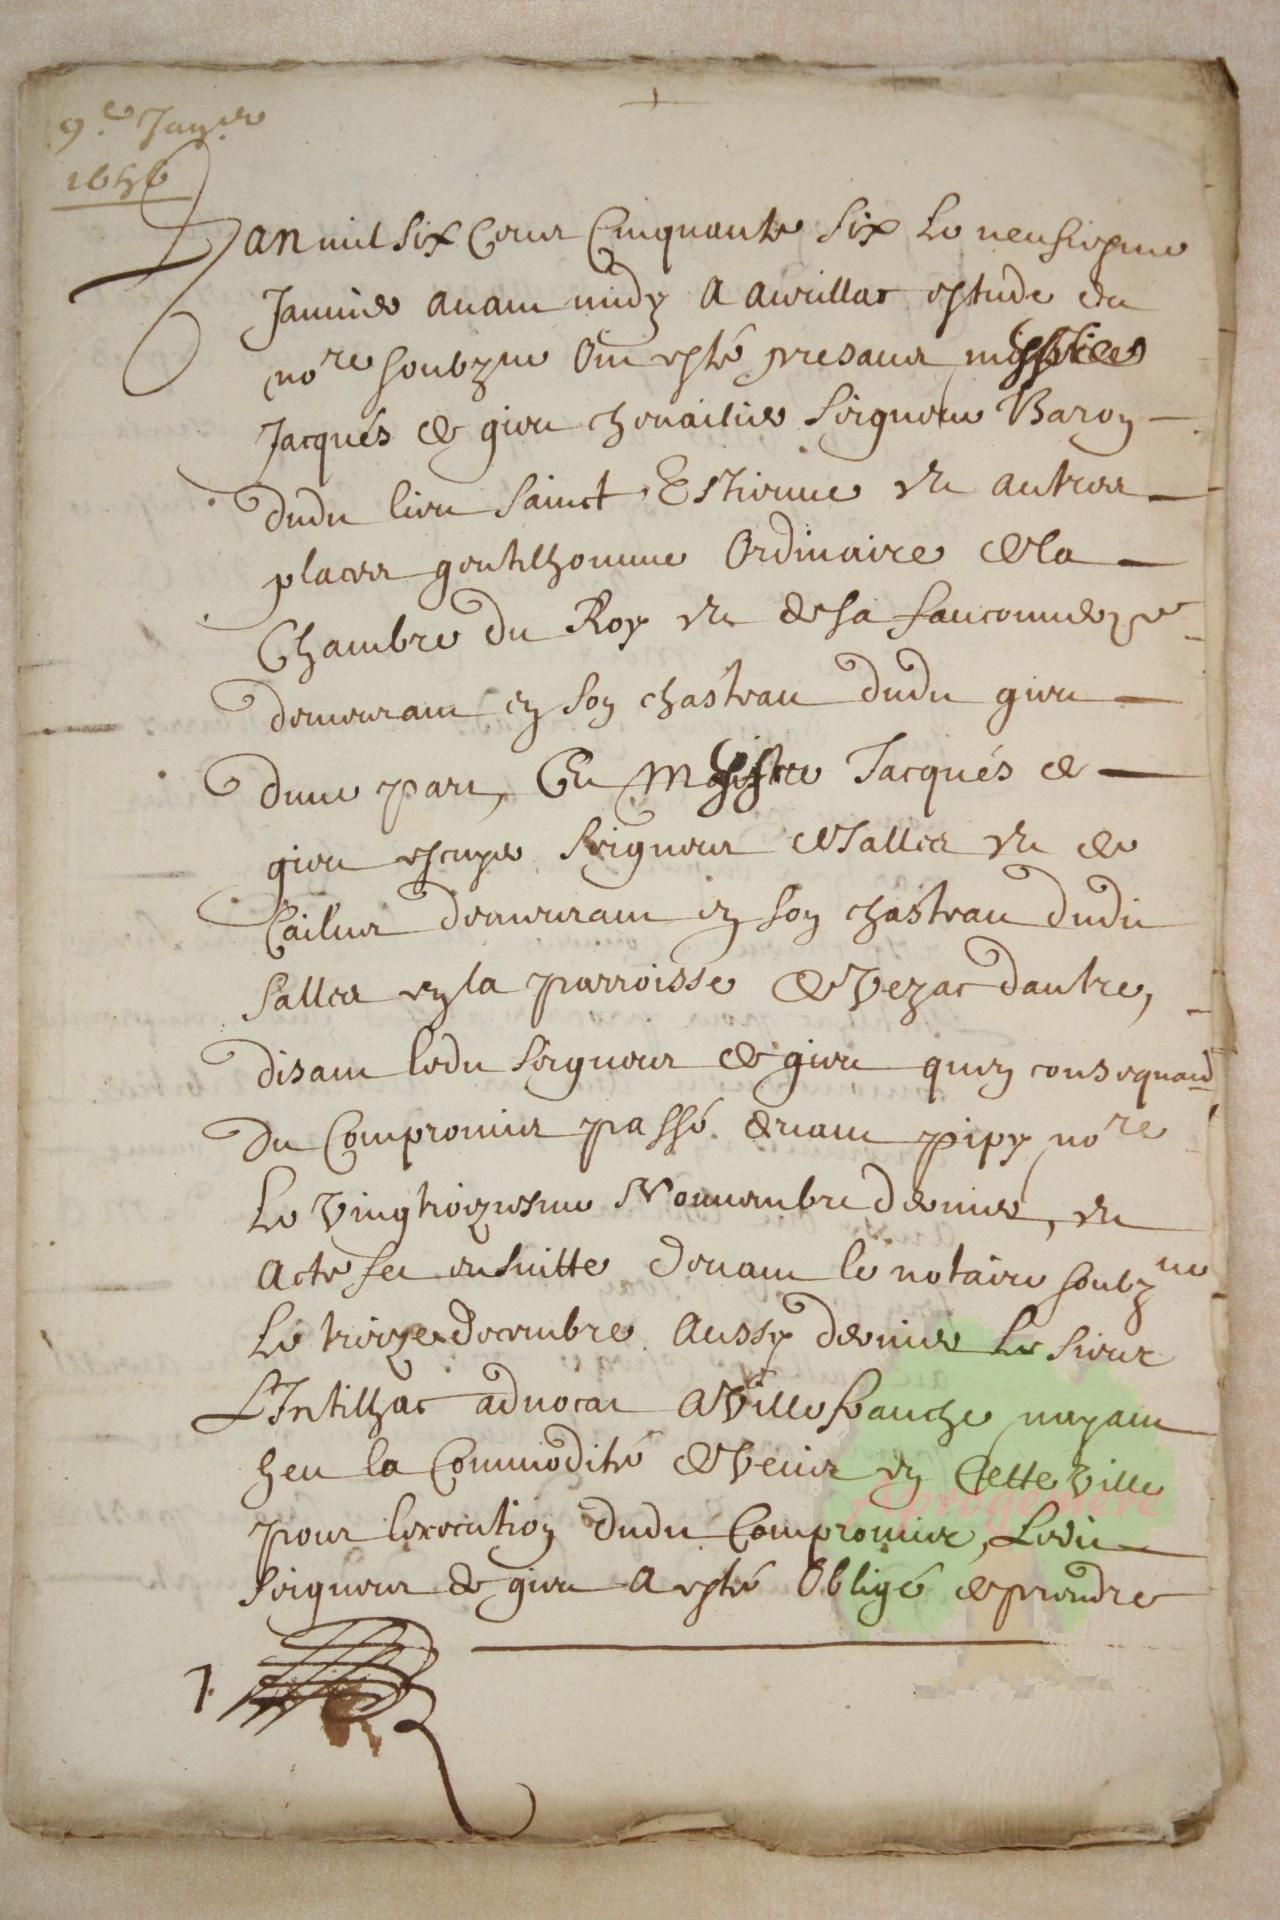 9.e Janer
1656
Lan mil six Cens Cinquante six Le neufviesme
Janvier avant midy a aurillac estude du
nore soubzne Ont esté presans messire
Jacqués de giou chevailier seigneur Baron
dudit lieu sainct Estienne et autres
places gentilhomme Ordinaire de la
Chambre du Roy et de sa fauconnerye
demeurant en son chasteau dudit giou
dune part, Et Jacqués de
giou escuyer seigneur de Salles et de
Cailus demeurant en son chasteau dudit
Salles en la parroisse de Vezac dautre,
disant ledit seigneur de giou quen consequand
du Compromis passé devant pipy nore
Le Vingtroiziesme Novembre dernier, et
Acte fet en suitte devant le notaire soubzne
Le treize decembre Aussy dernier Le sieur
L'Intilhac advocat a Villefranche nayant
heu la Commodité de Venir en Cette Ville
pour lexecution dudit Compromis, Ledit
seigneur de giou a esté Obligé de prendre
1.
Aprogemere